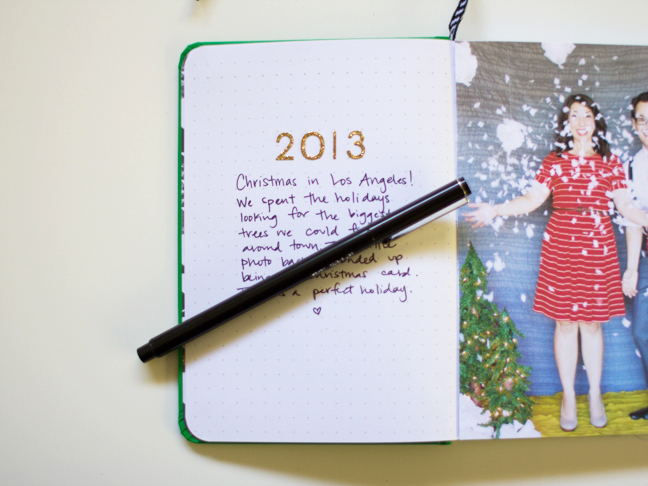 2013
Christmas in Los Angeles!
We spent the holidays
looking for the biggest
trees we could
around town
photo ended up
being christmas card.
a perfect holiday.